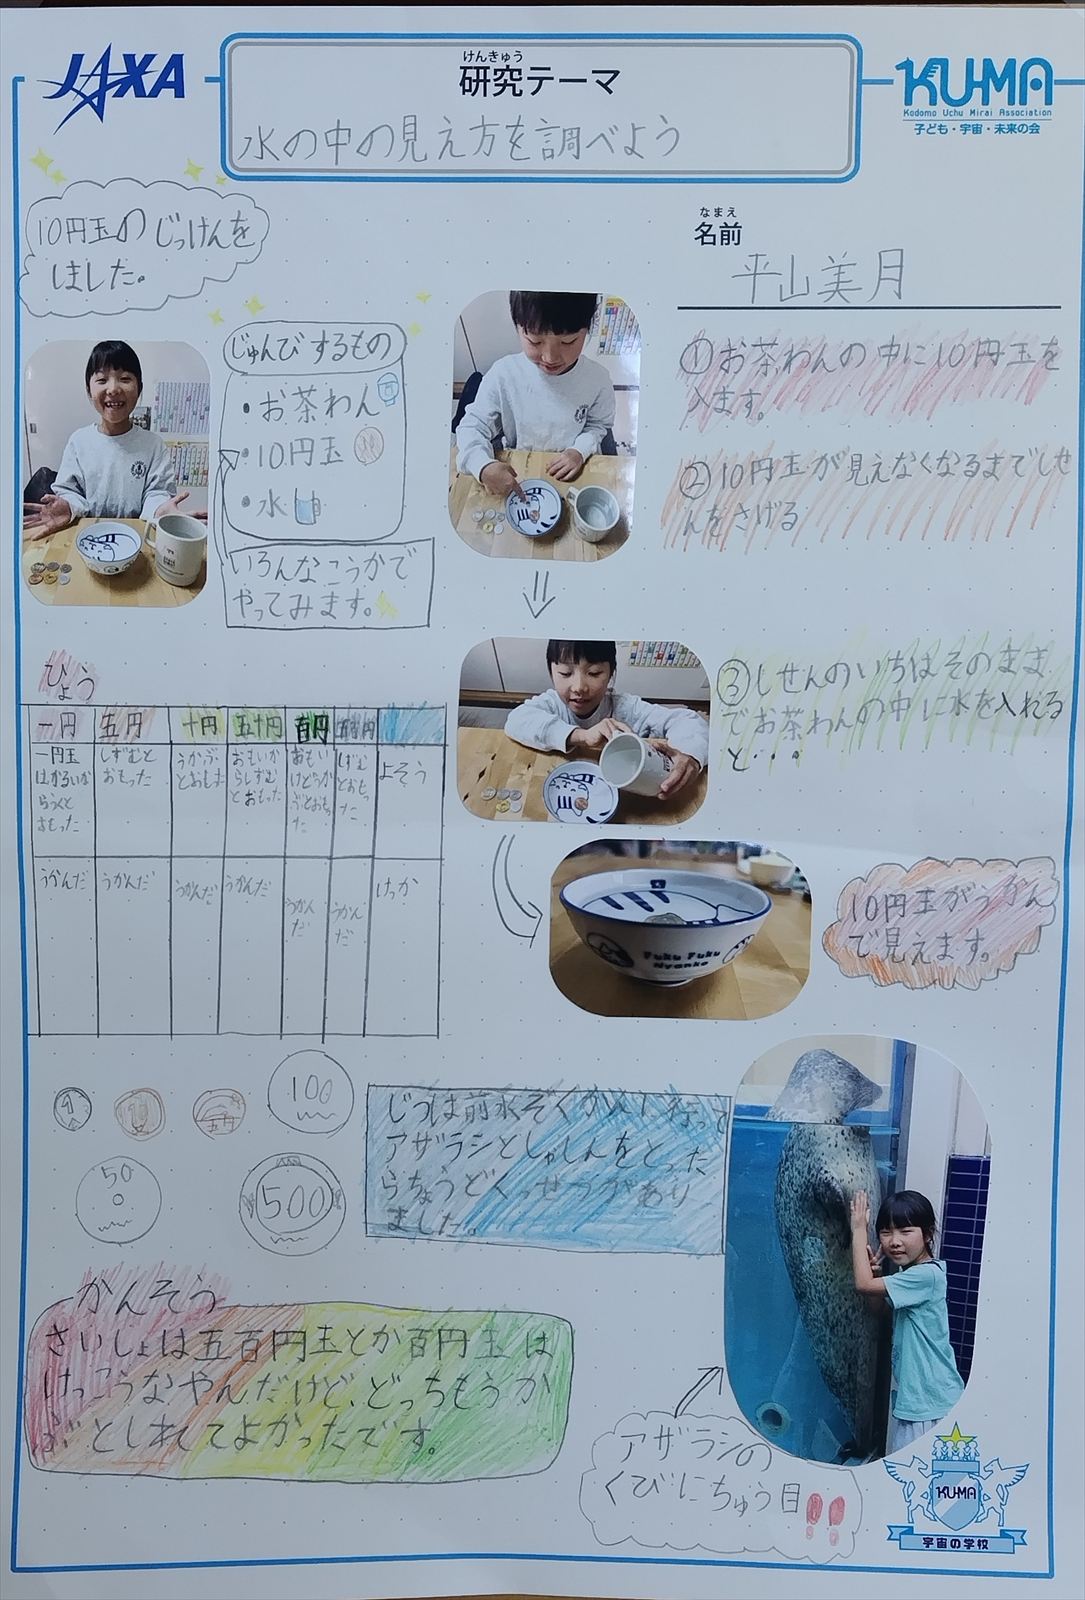 JAXA
けんきゅう
研究テーマ
水の中の見え方を調べよう
KU-MA
Kodomo Uchu Mirai Association
子ども・宇宙・未来の会
10円玉のじっけんを
しました。
なまえ
名前
平山美月
じゅんびするもの
・お茶わん
・10円玉
・水
いろんなこうかで
やってみます。
①お茶わんの中に10円玉を
入ます。
②10円玉が見えなくなるまでしせ
んをさげる
③しせんのいちはそのまま
でお茶わんの中に水を入れる
と・・・
10円玉がうかん
で見えます。
Fuku Fuku
Nyanko
ひょう
一円
五円
十円
五十円
百円
一円玉
はかるいか
らうくと
おもった
しずむと
おもった
うかぶ
とおもった
おもいか
らしずむ
とおもった
おもい
けどうか
ぶとおもっ
た
しずむ
とおもっ
た
よそう
うかんだ
うかんだ
うかんだ
うかんだ
うかん
だ
うかん
だ
けっか
1
10
五円
100
50
500
じつは前水ぞくかんに行って
アザラシとしゃしんをとった
らちょうどくっせつがあり
ました。
かんそう
さいしょは五百円玉とか百円玉は
けっこうなやんだけど、どっちもうか
ぶとしれてよかったです。
アザラシの
くびにちゅう目!!
KU-MA
宇宙の学校